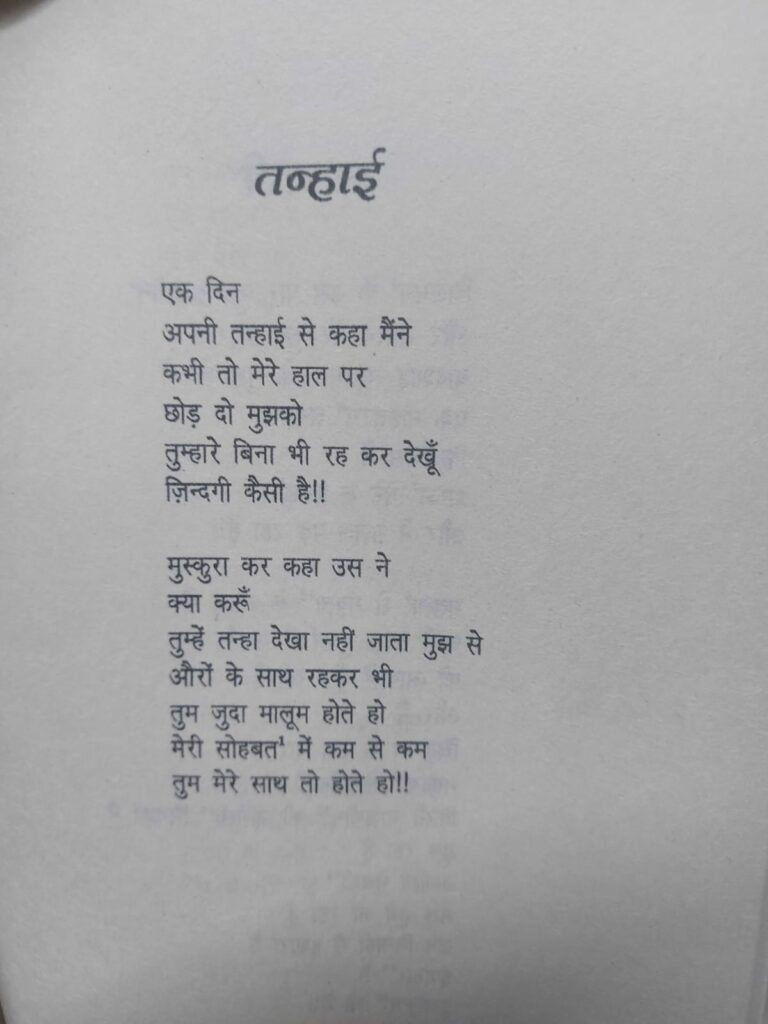 तन्हाई
एक दिन
अपनी तन्हाई से कहा मैंने
कभी तो मेरे हाल पर
छोड़ दो मुझको
तुम्हारे बिना भी रह कर देखूँ
ज़िन्दगी कैसी है!!
मुस्कुरा कर कहा उस ने
क्या करूँ
तुम्हें तन्हा देखा नहीं जाता मुझ से
औरों के साथ रहकर भी
तुम जुदा मालूम होते हो
मेरी सोहबत¹ में कम से कम
तुम मेरे साथ तो होते हो!!